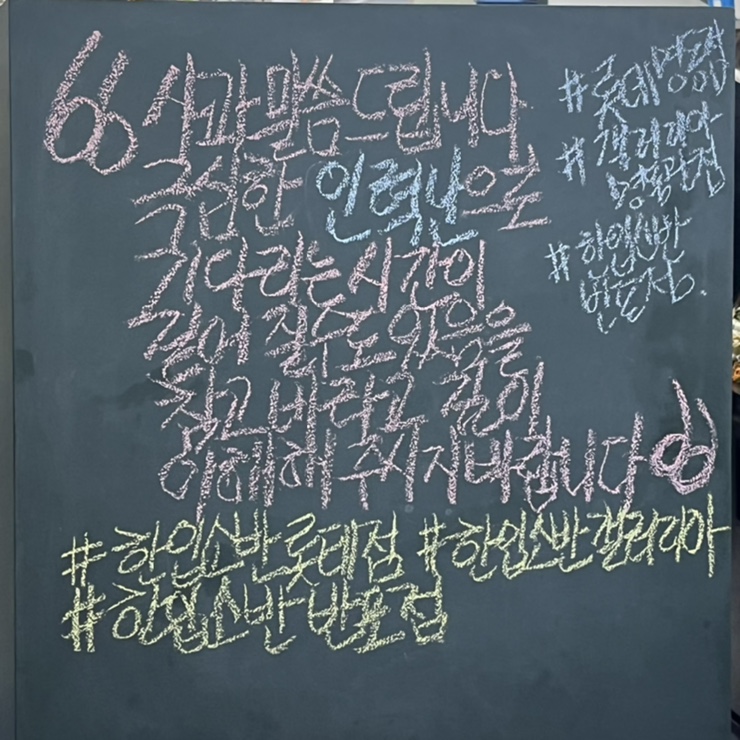 사과말씀드립니다
극심한 인력난으로
기다리는시간이
길어 질수도있음을
참고바라고 깊이
이해해주시지바랍니다
#한입소반롯데점 #한입소반갤러리아
#한입소반반포점
#롯데명점
#갤러리아
명품관점
#한입소반
반포점.